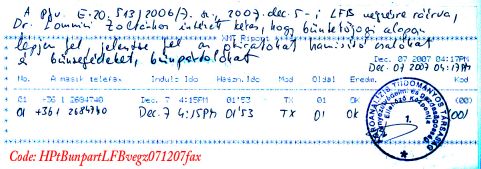 A Pjv. E-20. 513/2006/7. sz. 2007. dec. 5-i LFB végzésre ráírva,
Dr. Lomnici Zoltánhoz intézett kérés, hogy büntetőjogi alapon
lépjen fel, jelentse fel az okiratokat hamisító csalókat
és bűnsegédeket, bűnpártolókat
XMT Riport
Dec. 07 2007 04:17PM
Dec. 07 2007 04:17PM
No. A másik telefax Indulá Idö Haszn.Idö Mod Oldal Eredm. Kod
01 -36 1 2684740 Dec. 7 4:15PM 01'53 TX 01 OK (00)
01 +36 1 2684740 Dec. 7 4:15PM 01'53 TX 01 OK (00)
TUDOMÁNYOS TÁRSASÁG
1.
Code: HPtBunpartLFBvegz071207fax